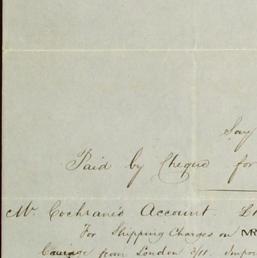 Say
Paid by Cheque for
Mr. Cochrane's Account.
For Shipping Charges on MR
Carriage from London 3/11. Impor